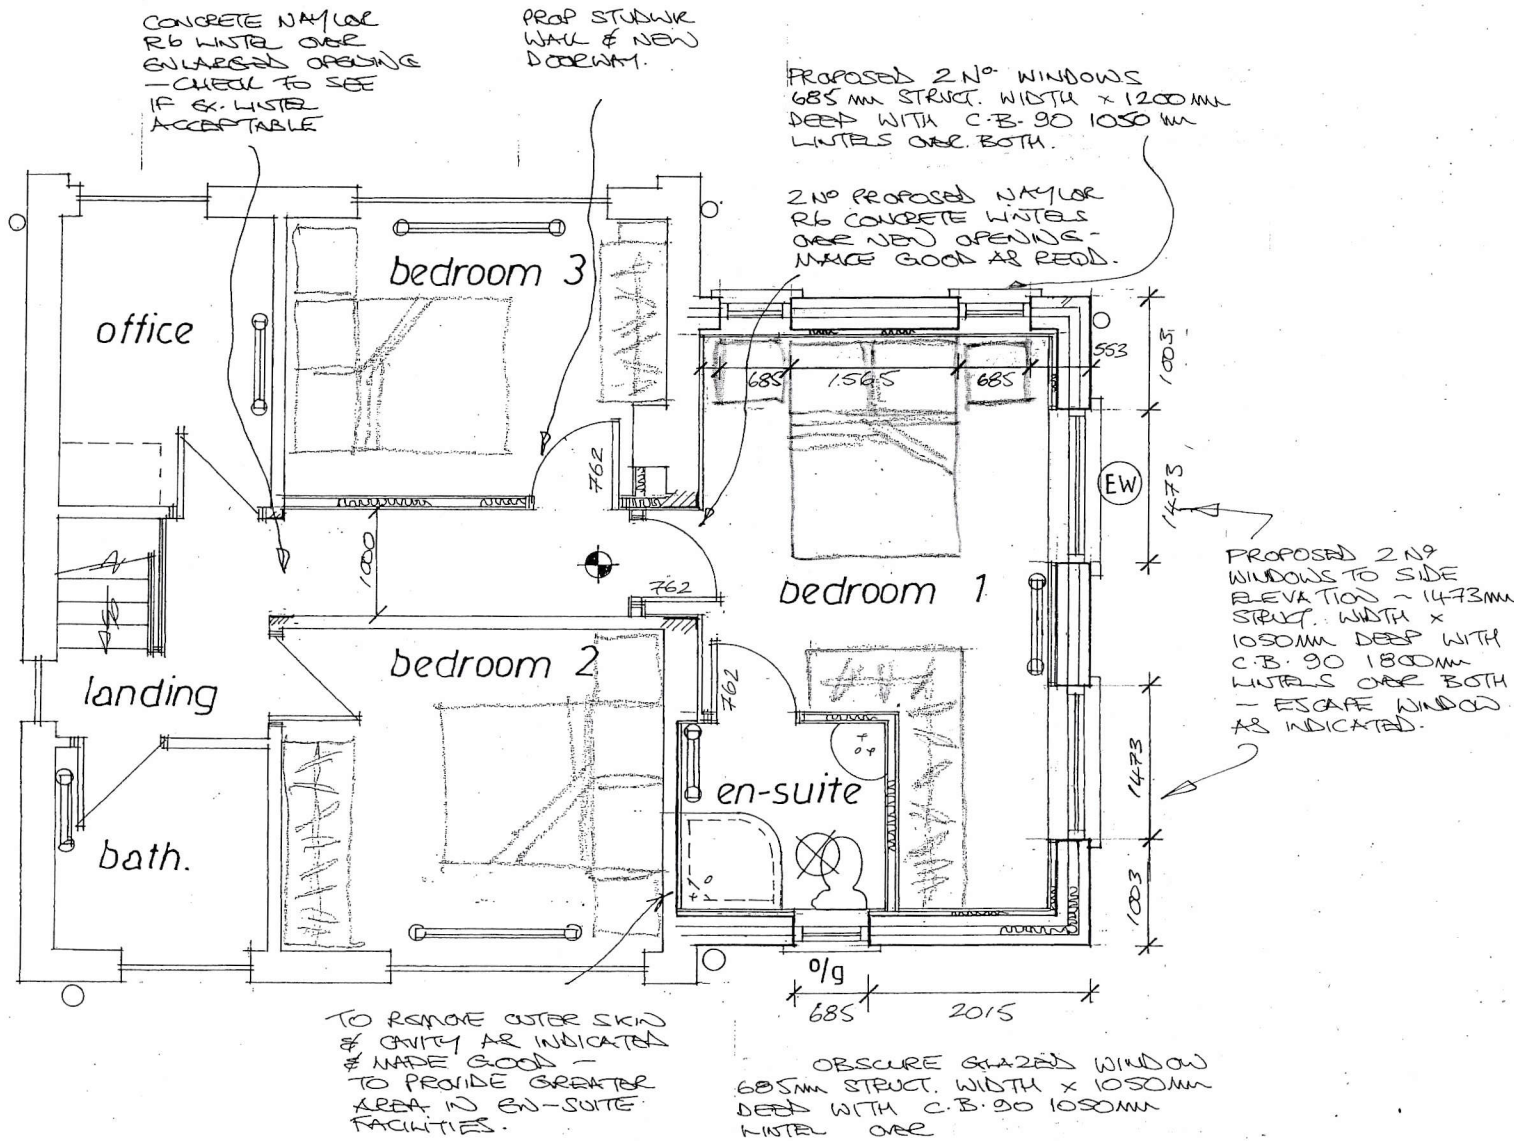 CONCRETE NAYLOR
R6 LINTEL OVER
ENLARGED OPENING
— CHECK TO SEE
IF EX. LINTEL
ACCEPTABLE
PROP STUDWK
WALL & NEW
DOORWAY.
PROPOSED 2 Nº WINDOWS
685 mm STRUCT. WIDTH × 1200 mm
DEEP WITH C.B. 90 1050 mm
LINTELS OVER BOTH.
2 Nº PROPOSED NAYLOR
R6 CONCRETE LINTELS
OVER NEW OPENING -
MAKE GOOD AS REQD.
office
bedroom 3
762
1000
762
685
1565
685
553
1003
1473
EW
bedroom 1
PROPOSED 2 Nº
WINDOWS TO SIDE
ELEVATION ~ 1473mm
STRUCT. WIDTH ×
1050mm DEEP WITH
C.B. 90 1800mm
LINTELS OVER BOTH
— ESCAPE WINDOW
AS INDICATED.
landing
bedroom 2
762
en-suite
bath.
1473
1003
o/g
685
2015
TO REMOVE OUTER SKIN
& CAVITY AS INDICATED
& MADE GOOD —
TO PROVIDE GREATER
AREA IN EN-SUITE
FACILITIES.
OBSCURE GLAZED WINDOW
685mm STRUCT. WIDTH × 1050mm
DEEP WITH C.B. 90 1050mm
LINTEL OVER